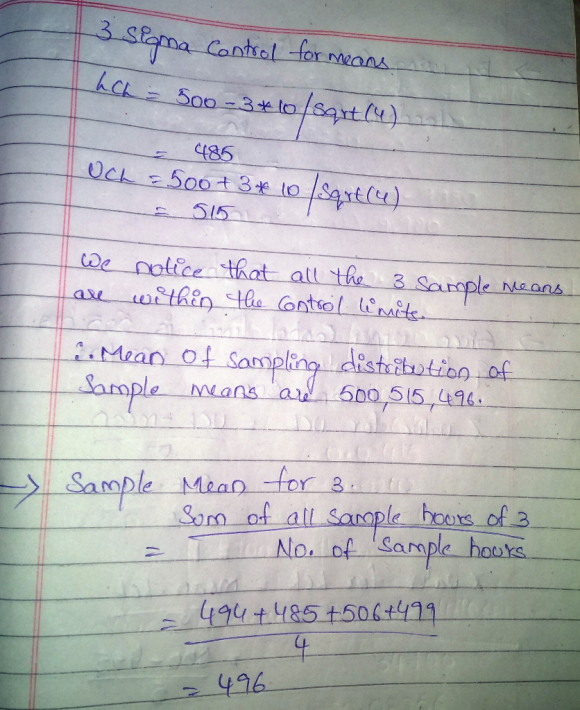 3 Sigma Control for means.
LCL = 500 - 3 * 10 / Sqrt(4)
= 485
UCL = 500 + 3 * 10 / Sqrt(4)
= 515
We notice that all the 3 Sample Means
are within the Control limits.
∴ Mean of Sampling distribution of
Sample means are 500, 515, 496.
→ Sample Mean for 3.
= Sum of all Sample hours of 3
No. of Sample hours
= 494 + 485 + 506 + 499
4
= 496